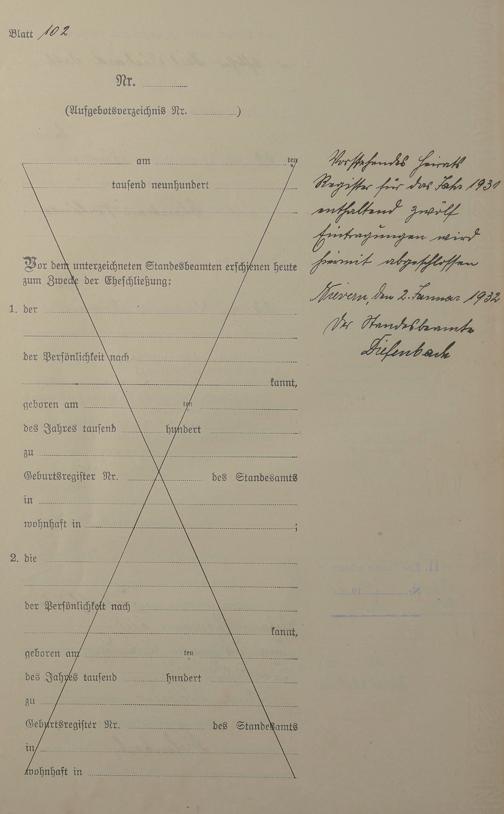 Blatt 102
Nr.
(Aufgebotsverzeichnis Nr. )
am ten
tausend neunhundert
Vor dem unterzeichneten Standesbeamten erschienen heute
zum Zwecke der Eheschließung:
1. der
der Persönlichkeit nach
kannt,
geboren am ten
des Jahres tausend hundert
zu
Geburtsregister Nr. des Standesamts
in
wohnhaft in ;
2. die
der Persönlichkeit nach
kannt,
geboren am ten
des Jahres tausend hundert
zu
Geburtsregister Nr. des Standesamts
in
wohnhaft in
Vorstehendes Heirats
Register für das Jahr
enthaltend zwölf
Eintragungen wird
hiermit abgeschlossen
Nievern, den 2. Januar 1932
Der Standesbeamte
Diefenbach